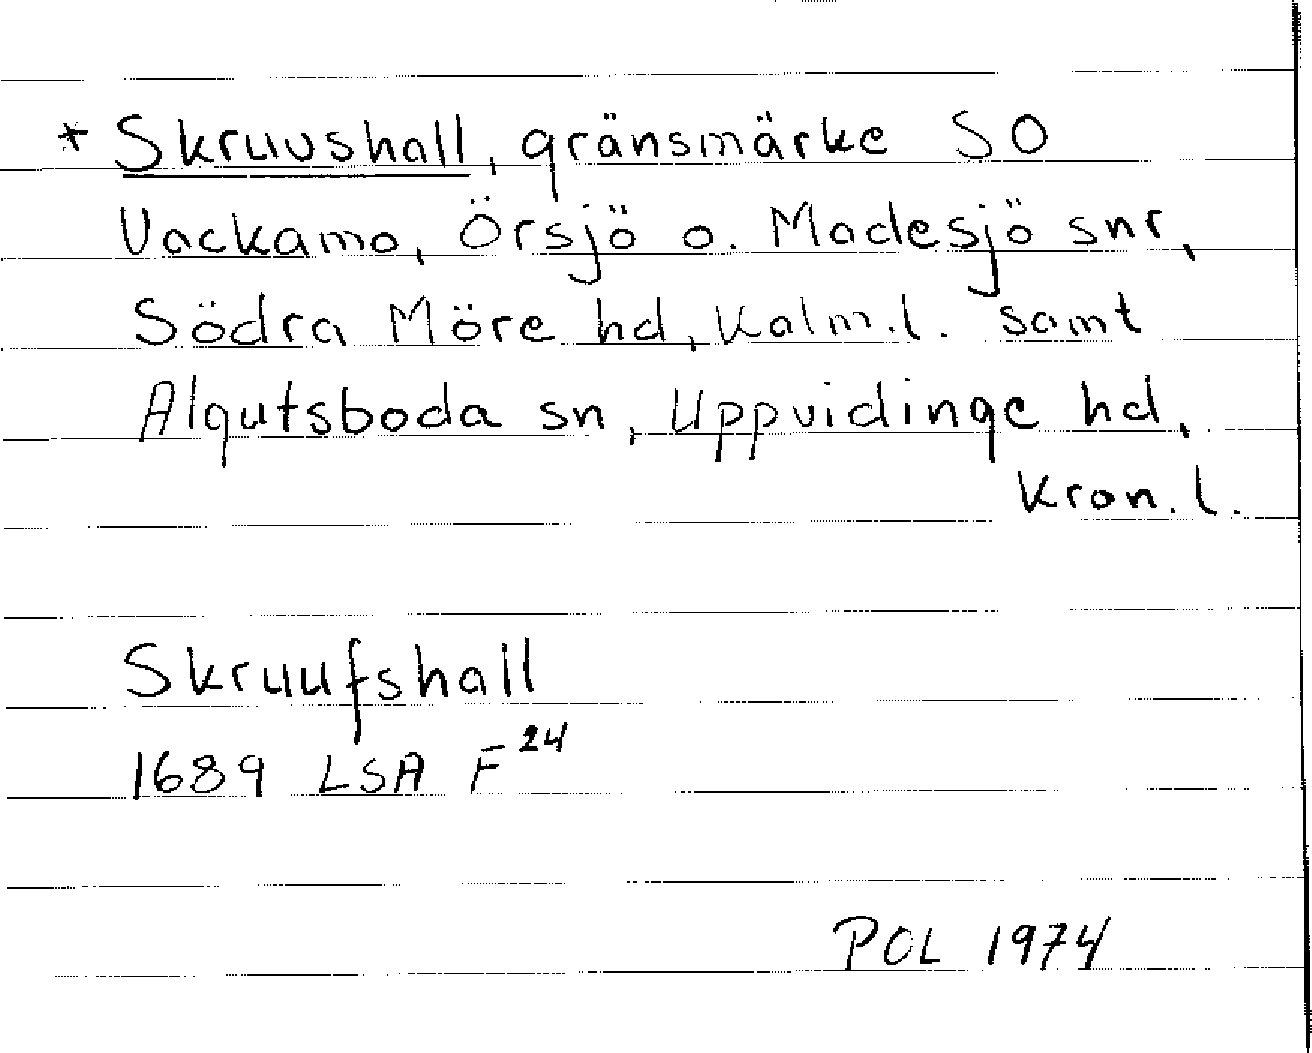 * Skruvshall, gränsmärke SO
Vackamo, Örsjö o. Madesjö snr,
Södra Möre hd, Kalm.l. samt
Algutsboda sn, Uppvidinge hd,
Kron.l.
Skruufshall
1689 LSA F24
POL 1974